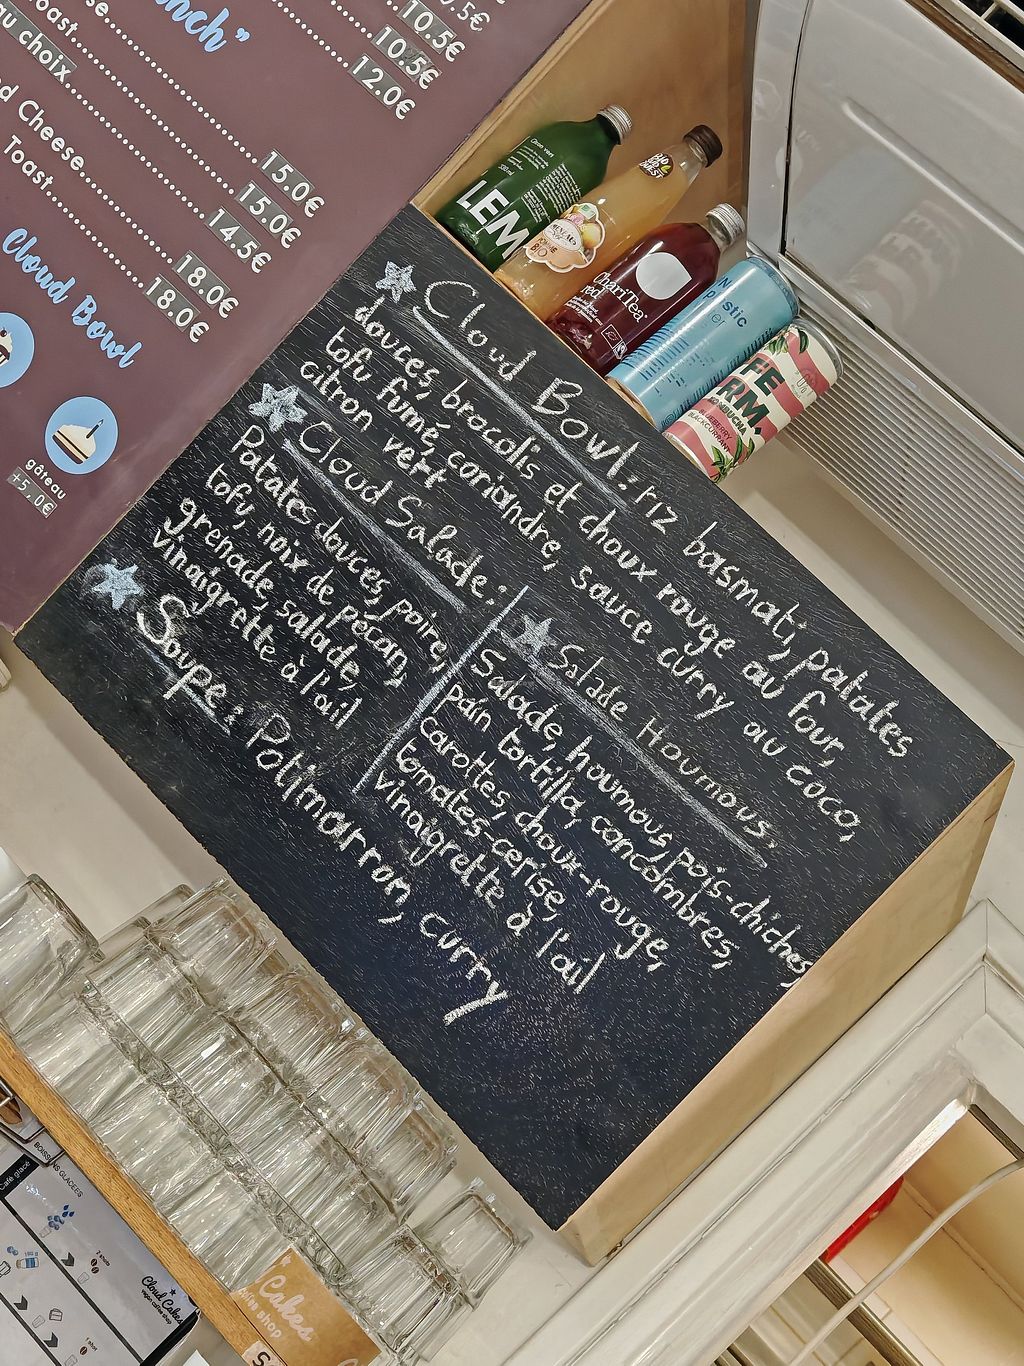 unch”
0.5€
10.5€
10.5€
12.0€
oast
au choix
15.0€
15.0€
14.5€
d Cheese
18.0€
Toast
18.0€
Cloud Bowl
gâteau
+5,0€
LEM
BIO
ChariTea
red
FE
RM.
KOMBUCHA
BLUEBERRY
BLACKCURRANT
Cloud Bowl: riz basmati, patates
douces, brocolis et choux rouge au four,
tofu fumé, coriandre, sauce curry au coco,
citron vert
Cloud Salade:
Patates douces, poire,
tofu, noix de pécan,
grenade, salade,
vinaigrette à l'ail
Salade Houmous:
Salade, houmous, pois-chiches,
pain tortilla, concombres,
carottes, choux-rouge,
tomates-cerise,
vinaigrette à l'ail
Soupe: Potimarron, curry
BOISSONS GLACEES
Café glacé
Cloud Cakes
vegan coffee shop
Cakes